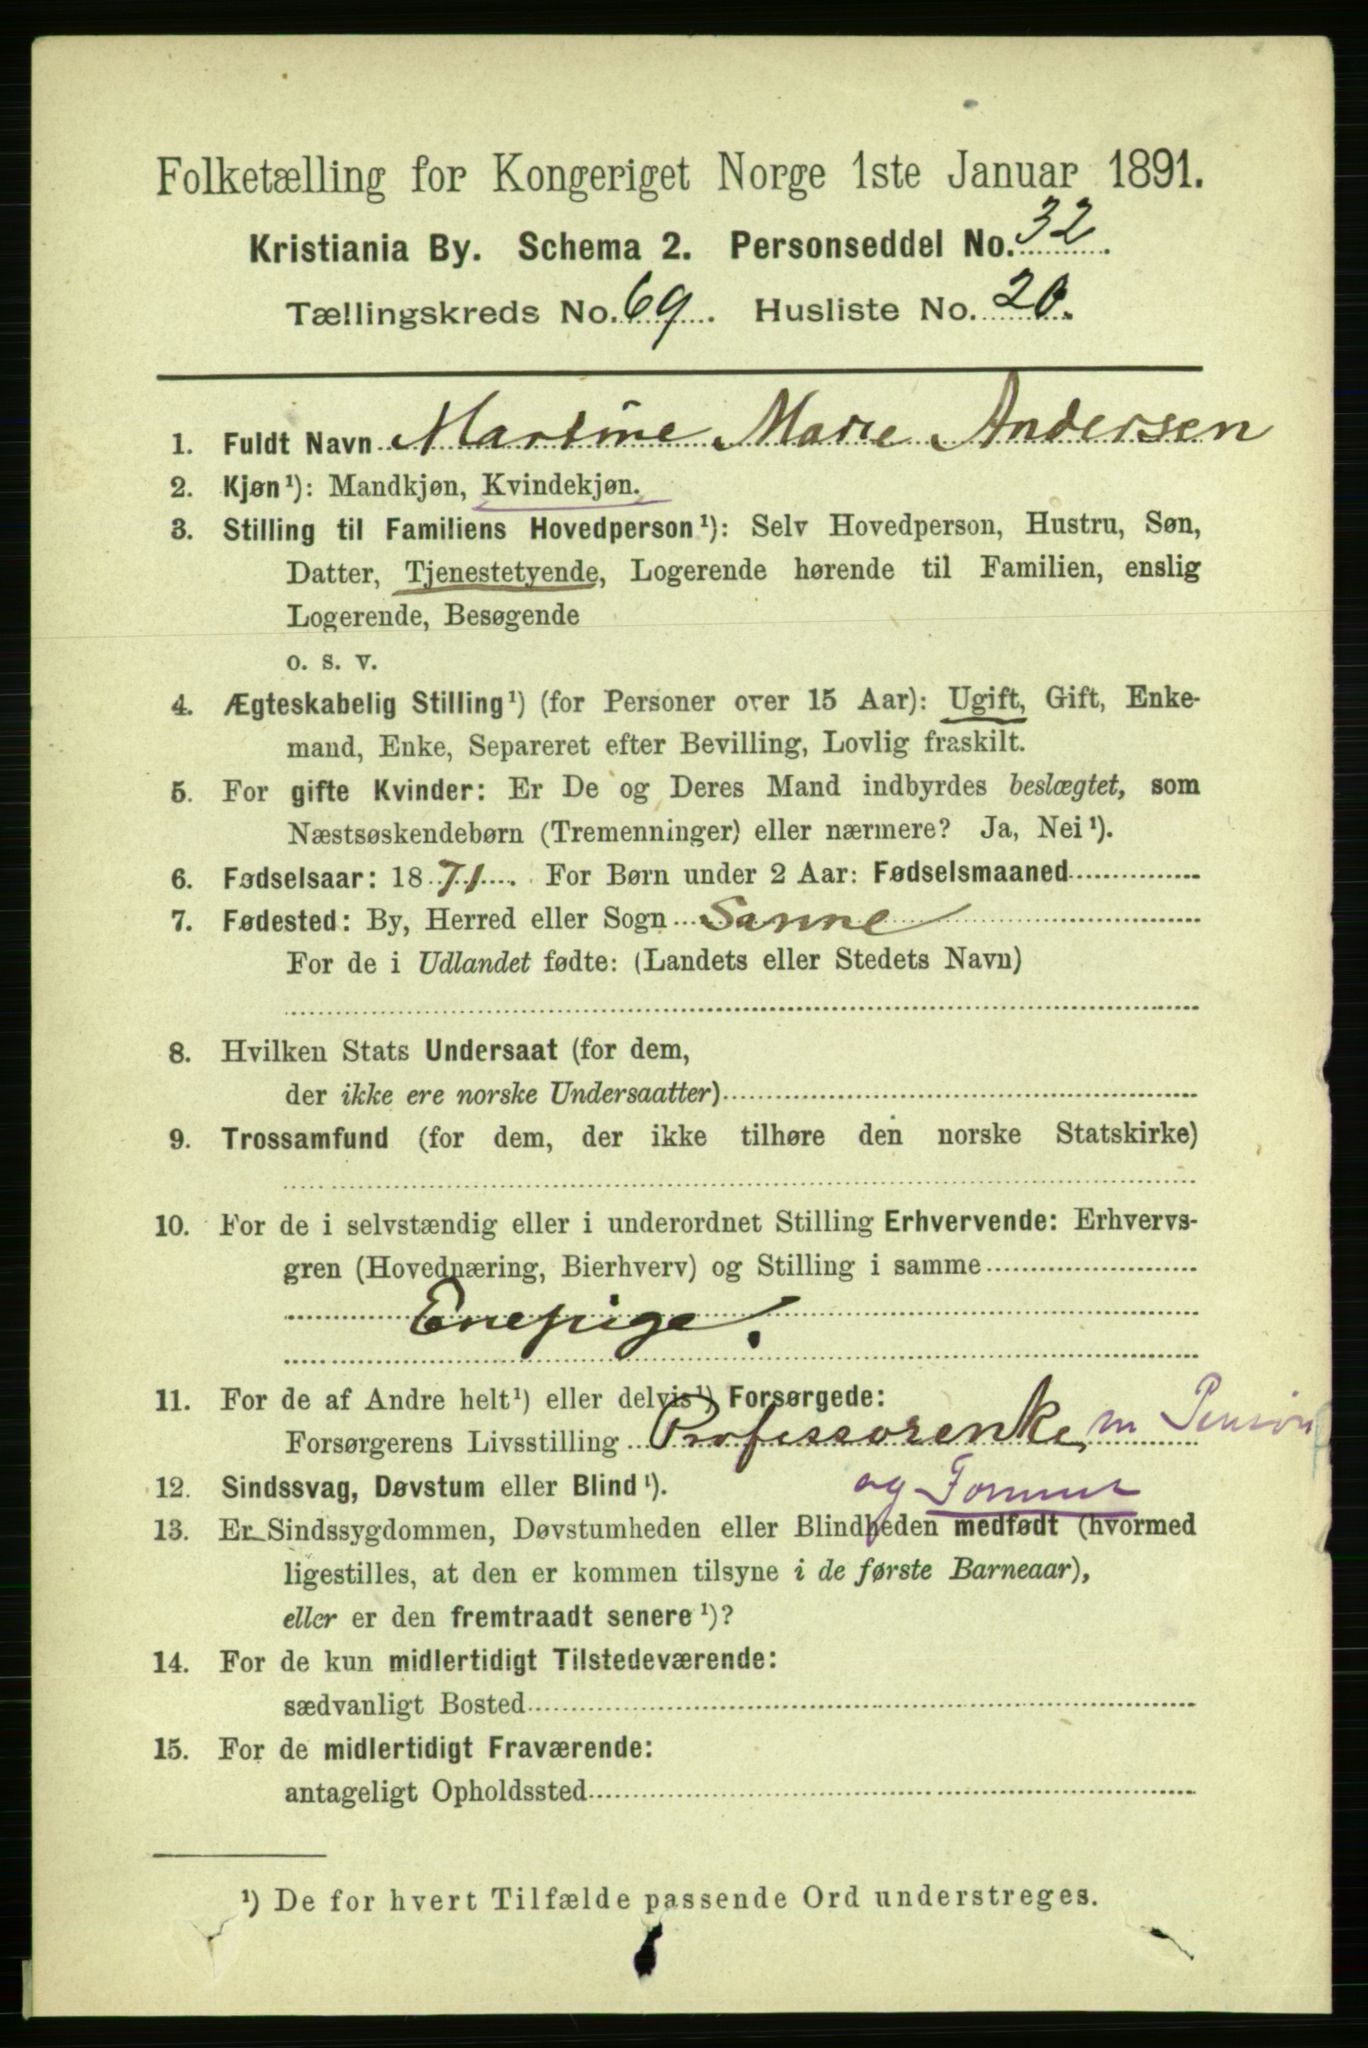 Folketælling for Kongeriget Norge 1ste Januar 1891.
Kristiania By. Schema 2. Personseddel No. 32.
Tællingskreds No. 69. Husliste No. 20.
1. Fuldt Navn Martine Marie Andersen
2. Kjøn¹): Mandkjøn, Kvindekjøn.
3. Stilling til Familiens Hovedperson¹): Selv Hovedperson, Hustru, Søn,
Datter, Tjenestetyende, Logerende hørende til Familien, enslig
Logerende, Besøgende
o. s. v.
4. Ægteskabelig Stilling¹) (for Personer over 15 Aar): Ugift, Gift, Enke-
mand, Enke, Separeret efter Bevilling, Lovlig fraskilt.
5. For gifte Kvinder: Er De og Deres Mand indbyrdes beslægtet, som
Næstsøskendebørn (Tremenninger) eller nærmere? Ja, Nei¹).
6. Fødselsaar: 1871. For Børn under 2 Aar: Fødselsmaaned
7. Fødested: By, Herred eller Sogn Sanne
For de i Udlandet fødte: (Landets eller Stedets Navn)
8. Hvilken Stats Undersaat (for dem,
der ikke ere norske Undersaatter)
9. Trossamfund (for dem, der ikke tilhøre den norske Statskirke)
10. For de i selvstændig eller i underordnet Stilling Erhvervende: Erhvervs-
gren (Hovednæring, Bierhverv) og Stilling i samme
Enepige.
11. For de af Andre helt¹) eller delvis¹) Forsørgede:
Forsørgerens Livsstilling Professorenke m Pension
og Formue
12. Sindssvag, Døvstum eller Blind¹).
13. Er Sindssygdommen, Døvstumheden eller Blindheden medfødt (hvormed
ligestilles, at den er kommen tilsyne i de første Barneaar),
eller er den fremtraadt senere¹)?
14. For de kun midlertidigt Tilstedeværende:
sædvanligt Bosted
15. For de midlertidigt Fraværende:
antageligt Opholdssted
¹) De for hvert Tilfælde passende Ord understreges.